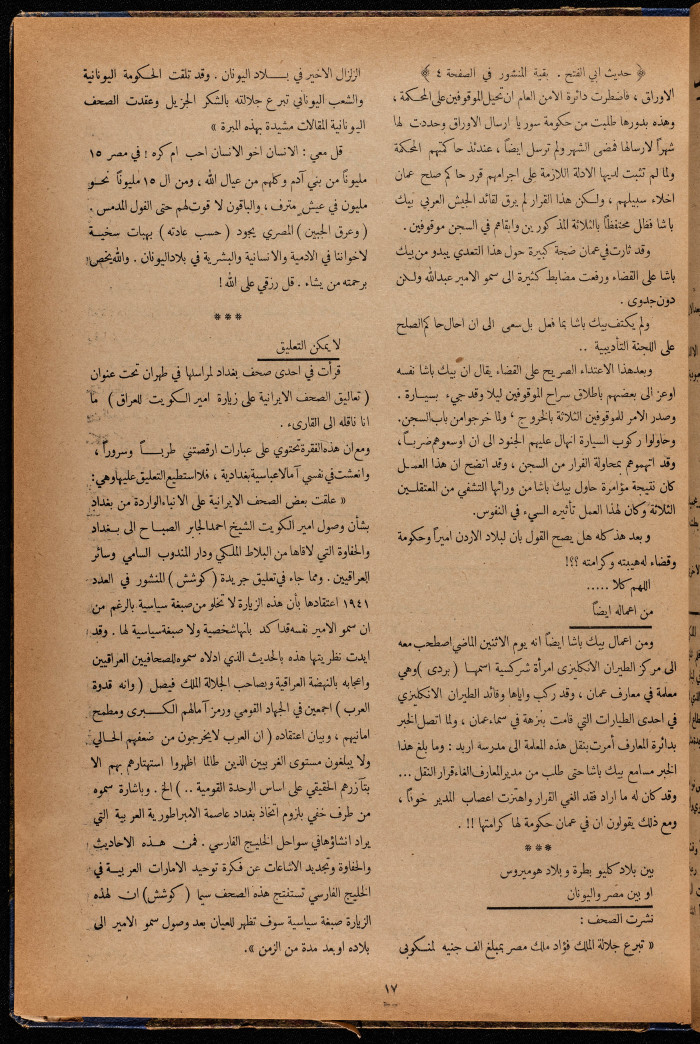 ﴿ حديث ابي الفتح . بقية المنشور في الصفحة ٤ ﴾
الاوراق ، فاضطرت دائرة الامن العام ان تحيل الموقوفين على المحكمة ،
وهذه بدورها طلبت من حكومة سوريا ارسال الاوراق وحددت لها
شهراً لارسالها فمضى الشهر ولم ترسل ايضاً ، عندئذ حاكمتهم المحكمة
ولما لم تثبت لديها الادلة اللازمة على اجرامهم قرر حاكم صلح عمان
اخلاء سبيلهم ، ولكن هذا القرار لم يرق لقائد الجيش العربي بيك
باشا فظل محتفظاً بالثلاثة المذكورين وابقاهم في السجن موقوفين .
وقد ثارت في عمان ضجة كبيرة حول هذا التعدي يبدو من بيك
باشا على القضاء ورفعت مضابط كثيرة الى سمو الامير عبدالله ولكن
دون جدوى .
ولم يكتف بيك باشا بما فعل بل سعى الى ان احال حاكم الصلح
على اللجنة التأديبية ..
وبعد هذا الاعتداء الصريح على القضاء يقال ان بيك باشا نفسه
اوعز الى بعضهم باطلاق سراح الموقوفين ليلا وقد جيء بسيارة .
وصدر الامر للموقوفين الثلاثة بالخروج ، ولما خرجوا من باب السجن.
وحاولوا ركوب السيارة انهال عليهم الجنود الى ان اوسعوهم ضرباً ،
وقد اتهموهم بمحاولة الفرار من السجن ، وقد اتضح ان هذا العمل
كان نتيجة مؤامرة حاول بيك باشا من ورائها التشفي من المعتقلين
الثلاثة وكان لهذا العمل تأثيره السيء في النفوس.
و بعد هذا كله هل يصح القول بان لبلاد الاردن اميراً وحكومة
وقضاء له هيبته وكرامته ؟؟!
اللهم كلا .....
من اعماله ايضاً
ومن اعمال بيك باشا ايضاً انه يوم الاثنين الماضي اصطحب معه
الى مركز الطيران الانكليزي امرأة شركسية اسمها ( بردى ) وهي
معلمة في معارف عمان ، وقد ركب واياها وقائد الطيران الانكليزي
في احدى الطيارات التي قامت بنزهة في سماء عمان ، ولما اتصل الخبر
بدائرة المعارف أمرت بنقل هذه المعلمة الى مدرسه اربد : وما بلغ هذا
الخبر مسامع بيك باشا حتى طلب من مدير المعارف الغاء قرار النقل ...
وقد كان له ما اراد فقد الغي القرار واهتزت اعصاب المدير خوفاً ،
ومع ذلك يقولون ان في عمان حكومة لها كرامتها !! .
***
بين بلاد كليو بطرة و بلاد هوميروس
او بين مصر واليونان
نشرت الصحف :
« تبرع جلالة الملك فؤاد ملك مصر بمبلغ الف جنيه لمنكوبى
الزلزال الاخير في بلاد اليونان . وقد تلقت الحكومة اليونانية
والشعب اليوناني تبرع جلالته بالشكر الجزيل وعقدت الصحف
اليونانية المقالات مشيدة بهذه المبرة »
قل معي : الانسان اخو الانسان احب ام كره ! في مصر ١٥
مليوناً من بني آدم وكلهم من عيال الله ، ومن ال ١٥ مليوناً نحو
مليون في عيش مترف ، والباقون لا قوت لهم حتى الفول المدمس .
( وعرق الجبين ) المصري يجود ( حسب عادته ) بهبات سخية
لاخواننا في الادمية والانسانية والبشرية في بلاد اليونان . والله يختص!
برحمته من يشاء . قل رزقي على الله !
***
لا يمكن التعليق
قرأت في احدى صحف بغداد لمراسلها في طهران تحت عنوان
( تعاليق الصحف الايرانية على زيارة امير الكويت للعراق ) ما
انا ناقله الى القارىء .
ومع ان هذه الفقرة تحتوي على عبارات ارقصتني طرباً وسروراً ،
وانعشت في نفسي آمالا عباسية بغدادية ، فلا استطيع التعليق عليها وهي:
« علقت بعض الصحف الايرانية على الانباء الواردة من بغداد
بشأن وصول امير الكويت الشيخ احمد الجابر الصباح الى بغداد
والحفاوة التي لاقاها من البلاط الملكي ودار المندوب السامي وسائر
العراقيين . ومما جاء في تعليق جريدة ( كوشش ) المنشور في العدد
١٩٤١ اعتقادها بأن هذه الزيارة لا تخلو من صبغة سياسية بالرغم من
ان سمو الامير نفسه قد اكد بانها شخصية ولا صبغة سياسية لها . وقد
ايدت نظريتها هذه بالحديث الذي ادلاه سموه للصحافيين العراقيين
واعجابه بالنهضة العراقية وبصاحب الجلالة الملك فيصل ( وانه قدوة
العرب ) اجمعين في الجهاد القومي ورمز آمالهم الكبرى ومطمح
امانيهم ، وبيان اعتقاده ( ان العرب لا يخرجون من ضعفهم الحالي
ولا يبلغون مستوى الغربيين الذين طالما اظهروا استهتارهم بهم الا
بتآزرهم الحقيقي على اساس الوحدة القومية .. ) الخ . وباشارة سموه
من طرف خفي بلزوم اتخاذ بغداد عاصمة الامبراطورية العربية التي
يراد انشاؤها في سواحل الخليج الفارسي . فمن هذه الاحاديث
والحفاوة وتجديد الاشاعات عن فكرة توحيد الامارات العربية في
الخليج الفارسي تستنتج هذه الصحف سيما ( كوشش ) ان لهذه
الزيارة صبغة سياسية سوف تظهر للعيان بعد وصول سمو الامير الى
بلاده او بعد مدة من الزمن ».
١٧